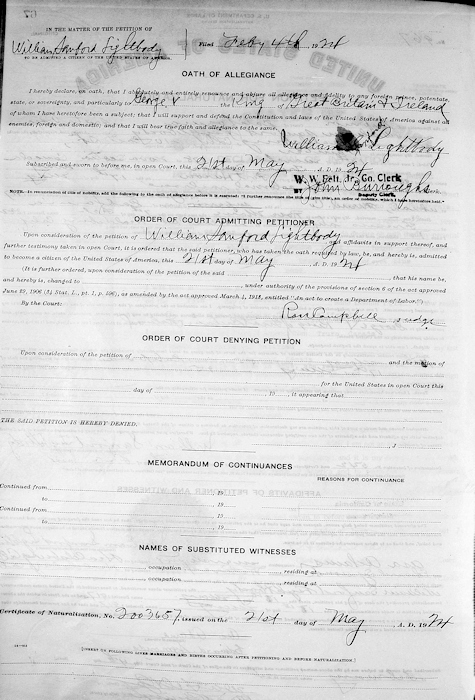 IN THE MATTER OF THE PETITION OF
William Sanford Lightbody
TO BE ADMITTED A CITIZEN OF THE UNITED STATES OF AMERICA.
Filed Feby 4th, 1924
OATH OF ALLEGIANCE
I hereby declare, on oath, that I absolutely and entirely renounce and abjure all allegiance and fidelity to any foreign prince, potentate,
state, or sovereignty, and particularly to George V King of Great Britain & Ireland
of whom I have heretofore been a subject; that I will support and defend the Constitution and laws of the United States of America against all
enemies, foreign and domestic; and that I will bear true faith and allegiance to the same.
William Lightbody
Subscribed and sworn to before me, in open Court, this 21st day of May A. D. 1924
W. W. Felt, Jr. Co. Clerk
BY John Burroughs
Deputy Clerk.
NOTE.—In renunciation of title of nobility, add the following to the oath of allegiance before it is signed: "I further renounce the title of (give title), an order of nobility, which I have heretofore held."
ORDER OF COURT ADMITTING PETITIONER
Upon consideration of the petition of William Sanford Lightbody and affidavits in support thereof, and
further testimony taken in open Court, it is ordered that the said petitioner, who has taken the oath required by law, be, and hereby is, admitted
to become a citizen of the United States of America, this 21st day of May A. D. 1924
(It is further ordered, upon consideration of the petition of the said that his name be,
and hereby is, changed to , under authority of the provisions of section 6 of the act approved
June 29, 1906 (34 Stat. L., pt. 1, p. 596), as amended by the act approved March 4, 1913, entitled "An act to create a Department of Labor.")
By the Court:
Ross Campbell Judge
ORDER OF COURT DENYING PETITION
Upon consideration of the petition of and the motion of
for the United States in open Court this
day of , 19 , it appearing that
THE SAID PETITION IS HEREBY DENIED.
J
MEMORANDUM OF CONTINUANCES
REASONS FOR CONTINUANCE
Continued from , 19
to , 19
Continued from , 19
to , 19
NAMES OF SUBSTITUTED WITNESSES
, occupation , residing at
, occupation , residing at
Certificate of Naturalization, No. 2003657, issued on the 21st day of May, A. D. 1924
[INSERT ON FOLLOWING LINES MARRIAGES AND BIRTHS OCCURRING AFTER PETITIONING AND BEFORE NATURALIZATION.]